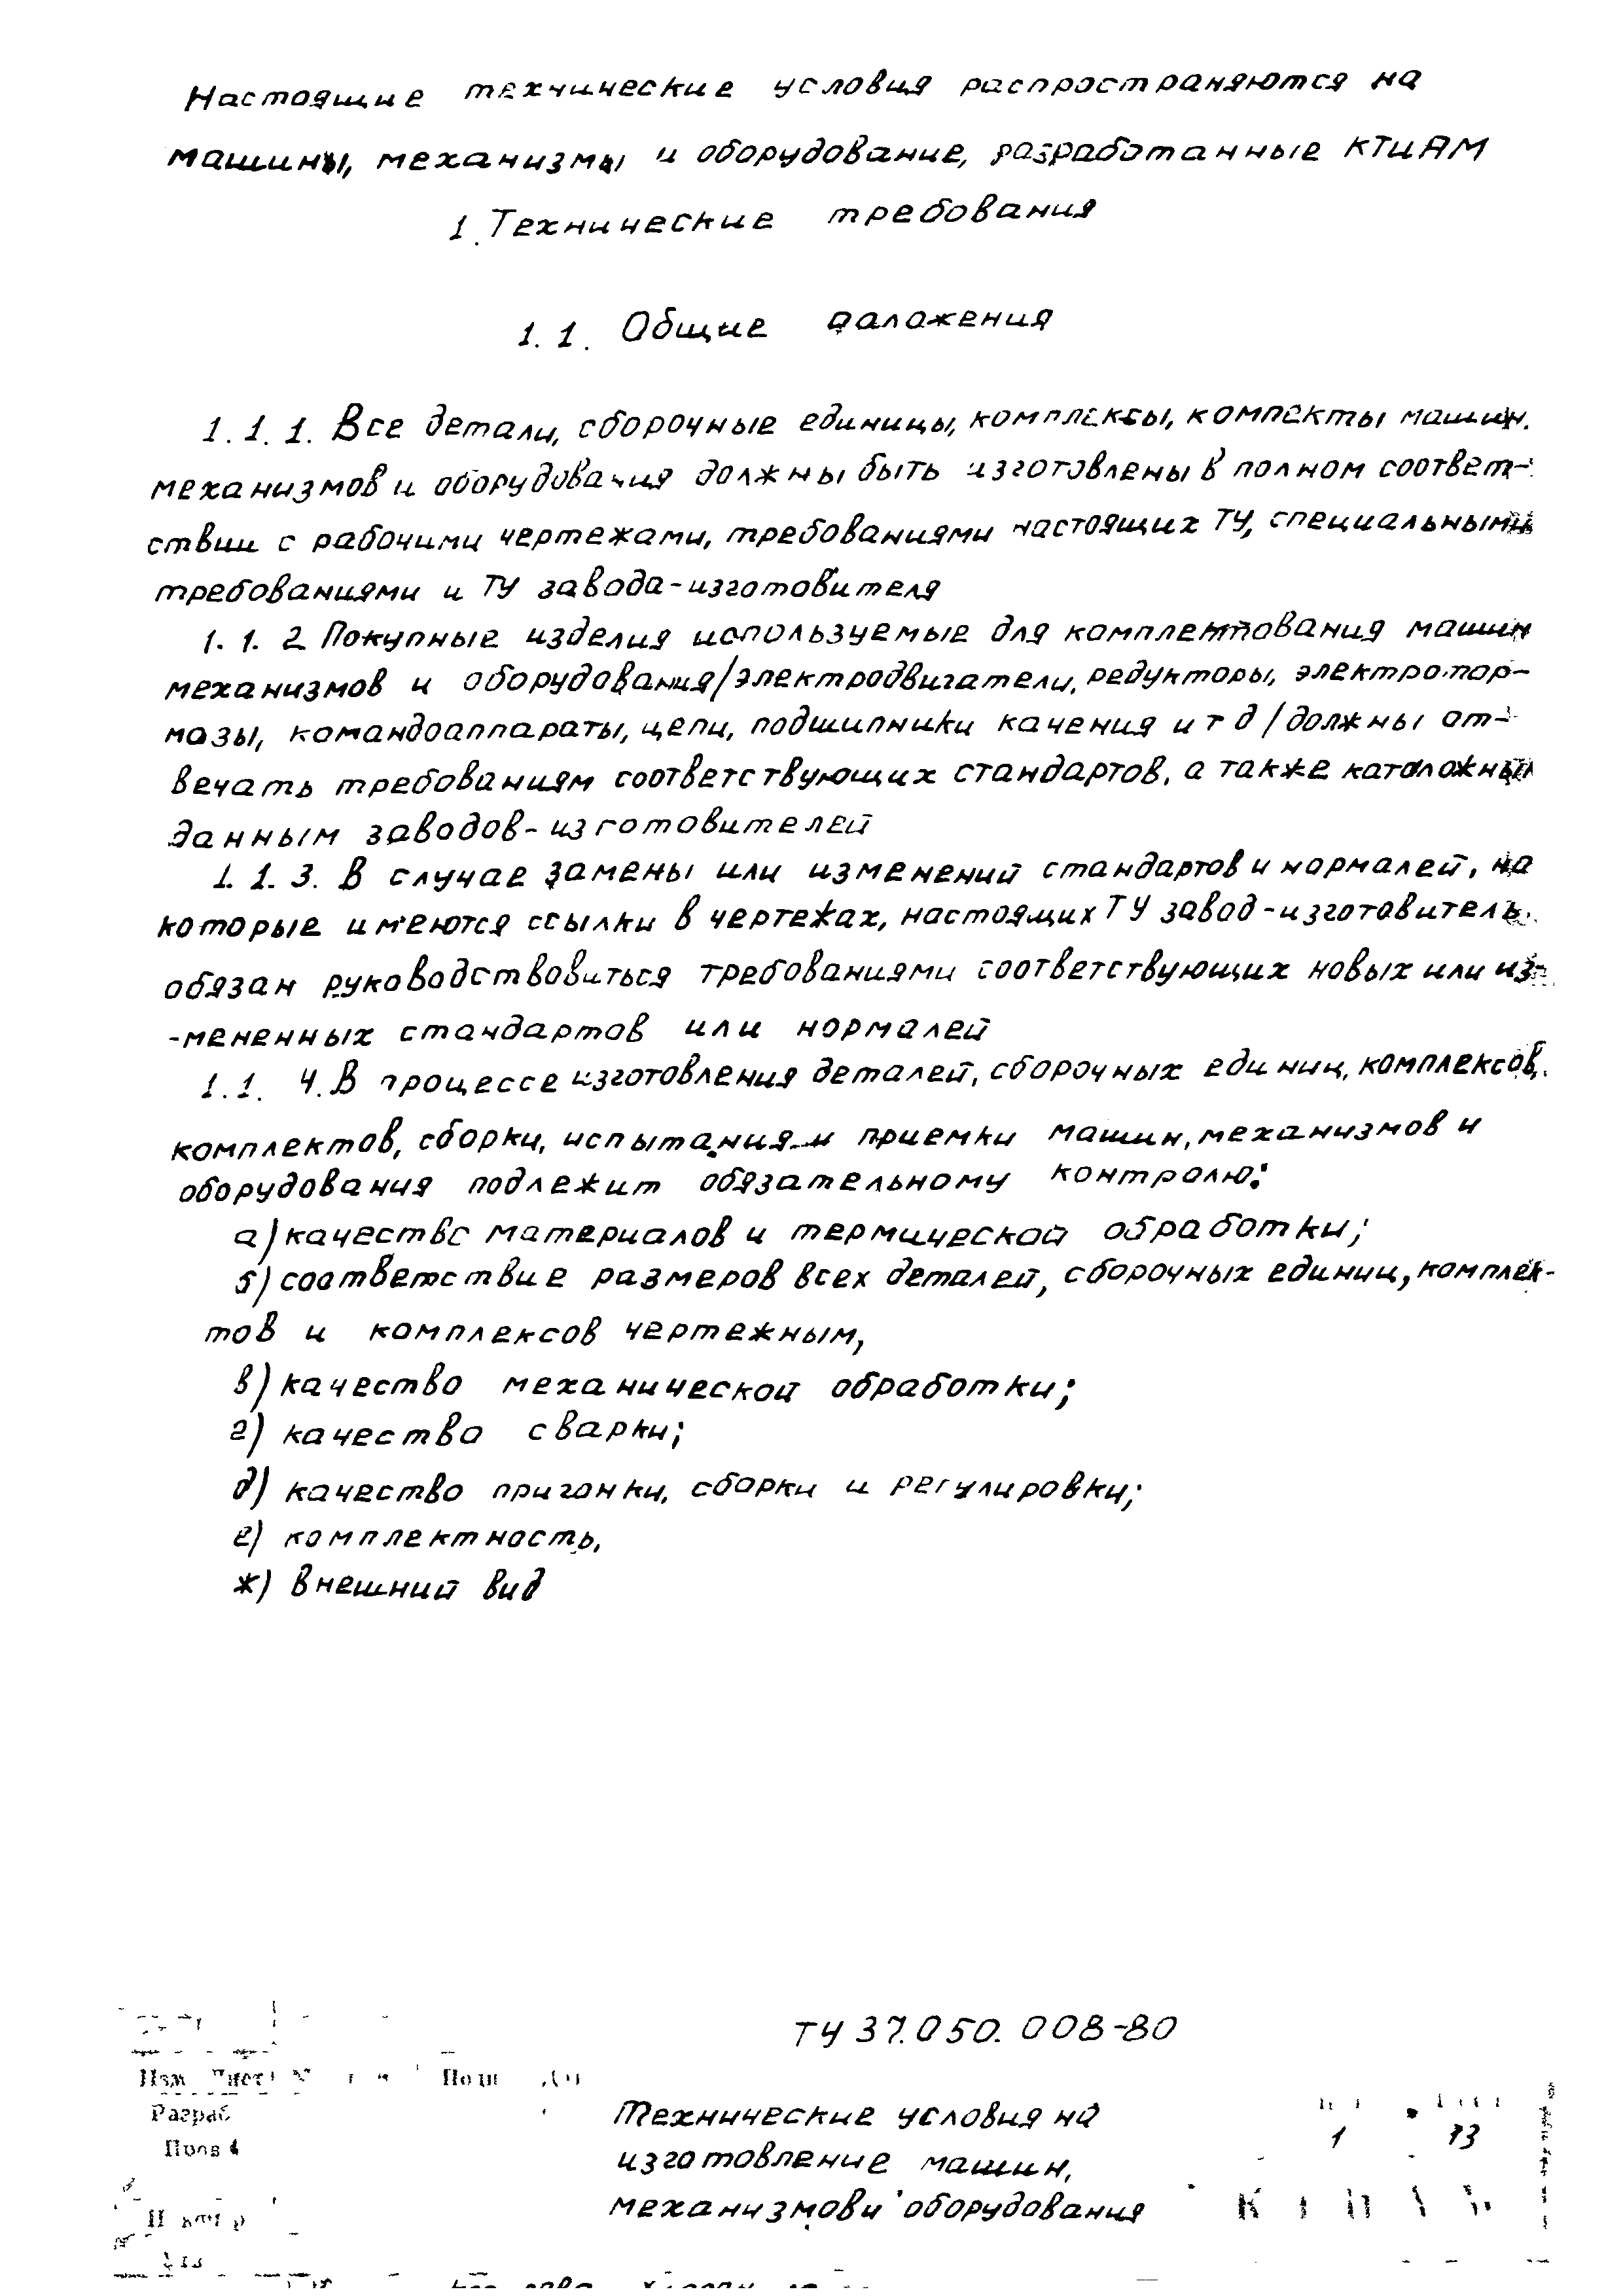 Настоящие технические условия распространяются на
машины, механизмы и оборудование, разработанные КТиАМ
1. Технические требования
1.1. Общие положения
1.1.1. Все детали, сборочные единицы, комплексы, компекты машин.
механизмов и оборудования должны быть изготовлены в полном соответ-
ствии с рабочими чертежами, требованиями настоящих ТУ, специальными
требованиями и ТУ завода-изготовителя
1.1.2 Покупные изделия используемые для комплектования машин
механизмов и оборудования/электродвигатели, редукторы, электро.тор-
мазы, командоаппараты, цепи, подшипники качения и т д / должны от-
вечать требованиям соответствующих стандартов, а также каталожным
данным заводов-изготовителей
1.1.3. В случае замены или изменений стандартов и нормалей, на
которые имеются ссылки в чертежах, настоящих ТУ завод-изготовитель
обязан руководствовиться требованиями соответствующих новых или из-
-мененных стандартов или нормалей
1.1.4. В процессе изготовления деталей, сборочных единиц, комплексов,
комплектов, сборки, испытания и приемки машин, механизмов и
оборудования подлежит обязательному контролю:
а) качество материалов и термической обработки;
б) соответствие размеров всех деталей, сборочных единиц, комплек-
тов и комплексов чертежным,
в) качество механической обработки;
г) качество сварки;
д) качество пригонки, сборки и регулировки;
е) комплектность,
ж) внешний вид
ТУ 37.050.008-80
Изм Лист
Разраб
Технические условия на
изготовление машин,
механизмови оборудования
1 13